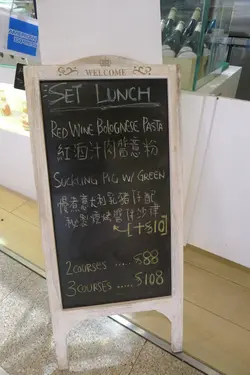 WELCOME
SET LUNCH
RED WINE BOLOGNESE PASTA
紅酒汁肉醬意粉
SUCKLING PIG W/ GREEN
慢煮意大利乳豬件配
秘製燒烤醬伴沙律
[+$10]
2 COURSES ..... $88
3 COURSES ..... $108